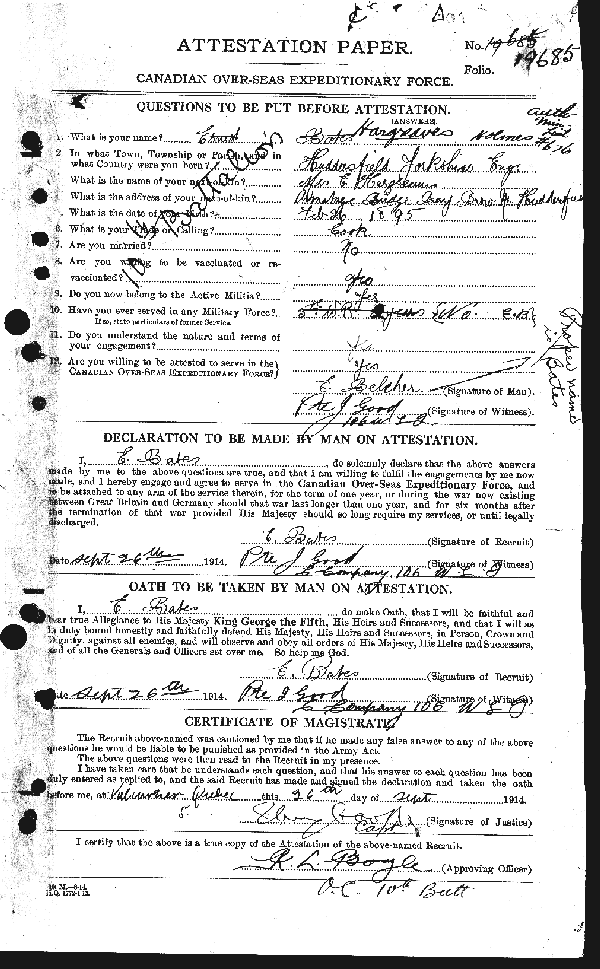 ATTESTATION PAPER.
No. 19685
19685
Folio.
CANADIAN OVER-SEAS EXPEDITIONARY FORCE.
QUESTIONS TO BE PUT BEFORE ATTESTATION.
(ANSWERS)
1. What is your name? Bates Hargreaves Holmes
2. In what Town, Township or Parish, and in
what Country were you born? Huddersfield Yorkshire Eng.
What is the name of your next-of-kin? Mrs E Hargreaves
What is the address of your next-of-kin? Armitage Bridge
What is the date of your birth? Feb 26 1895
6. What is your Trade or Calling? Cook
7. Are you married? No
8. Are you willing to be vaccinated or re-
vaccinated? Yes
9. Do you now belong to the Active Militia? Yes
10. Have you ever served in any Military Force? No.
If so, state particulars of former Service.
11. Do you understand the nature and terms of
your engagement? Yes
12. Are you willing to be attested to serve in the
CANADIAN OVER-SEAS EXPEDITIONARY FORCE? Yes
Proper name is Bates
E Belcher (Signature of Man).
Pte J Good (Signature of Witness).
106 W L I
DECLARATION TO BE MADE BY MAN ON ATTESTATION.
I, E. Bates, do solemnly declare that the above answers
made by me to the above questions are true, and that I am willing to fulfil the engagements by me now
made, and I hereby engage and agree to serve in the Canadian Over-Seas Expeditionary Force, and
to be attached to any arm of the service therein, for the term of one year, or during the war now existing
between Great Britain and Germany should that war last longer than one year, and for six months after
the termination of that war provided His Majesty should so long require my services, or until legally
discharged.
E. Bates (Signature of Recruit)
Date Sept 26th 1914. Pte J Good (Signature of Witness)
C Company 106 W L I
OATH TO BE TAKEN BY MAN ON ATTESTATION.
I, E Bates, do make Oath, that I will be faithful and
bear true Allegiance to His Majesty King George the Fifth, His Heirs and Successors, and that I will as
in duty bound honestly and faithfully defend His Majesty, His Heirs and Successors, in Person, Crown and
Dignity, against all enemies, and will observe and obey all orders of His Majesty, His Heirs and Successors,
and of all the Generals and Officers set over me. So help me God.
E. Bates (Signature of Recruit)
Date Sept 26th 1914. Pte J Good (Signature of Witness)
C Company 106 W L I
CERTIFICATE OF MAGISTRATE
The Recruit above-named was cautioned by me that if he made any false answer to any of the above
questions he would be liable to be punished as provided in the Army Act.
The above questions were then read to the Recruit in my presence.
I have taken care that he understands each question, and that his answer to each question has been
duly entered as replied to, and the said Recruit has made and signed the declaration and taken the oath
before me, at Valcartier Quebec this 26th day of Sept 1914.
Capt (Signature of Justice)
I certify that the above is a true copy of the Attestation of the above-named Recruit.
R. L. Boyle (Approving Officer)
O.C. 10th Batt